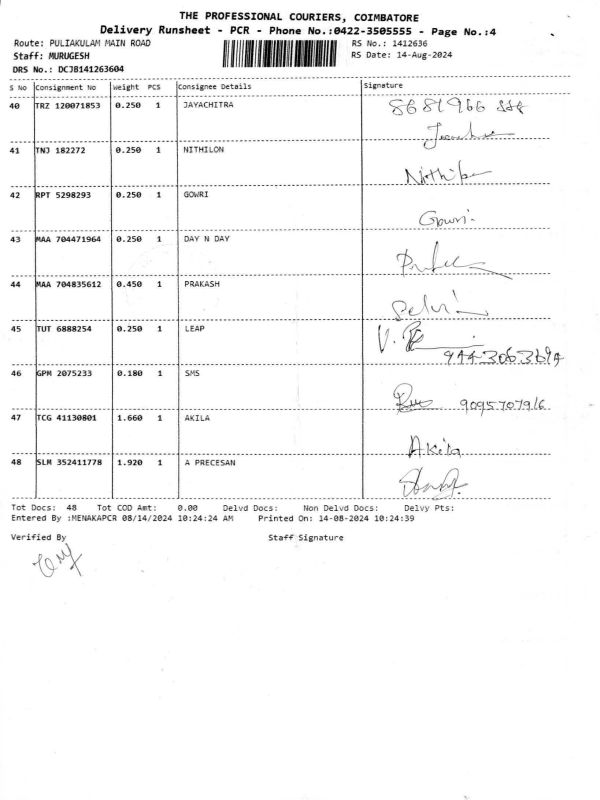 THE PROFESSIONAL COURIERS, COIMBATORE
Delivery Runsheet - PCR - Phone No.:0422-3505555 - Page No.:4
Route: PULIAKULAM MAIN ROAD RS No.: 1412636
Staff: MURUGESH RS Date: 14-Aug-2024
DRS No.: DCJB141263604
S No Consignment No Weight PCS Consignee Details Signature
40 TRZ 120071853 0.250 1 JAYACHITRA
41 TNJ 182272 0.250 1 NITHILON
42 RPT 5298293 0.250 1 GOWRI
Gowri
43 MAA 704471964 0.250 1 DAY N DAY
44 MAA 704835612 0.450 1 PRAKASH
Selvi
45 TUT 6888254 0.250 1 LEAP
46 GPM 2075233 0.180 1 SMS
9095707916
47 TCG 41130801 1.660 1 AKILA
Akila
48 SLM 352411778 1.920 1 A PRECESAN
Tot Docs: 48 Tot COD Amt: 0.00 Delvd Docs: Non Delvd Docs: Delvy Pts:
Entered By :MENAKAPCR 08/14/2024 10:24:24 AM Printed On: 14-08-2024 10:24:39
Verified By Staff Signature